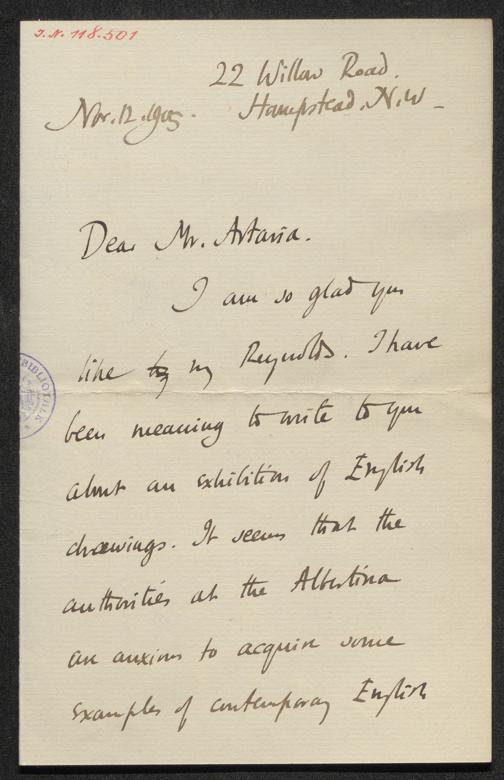 I.N. 118.501
22 Willow Road.
Hampstead. N.W
Nov. 12. 1905.
Dear Mr. Artaria.
I am so glad you
like my Reynolds. I have
been meaning to write to you
about an exhibition of English
drawings. It seems that the
authorities at the Albertina
are anxious to acquire some
examples of contemporary English
BIBLIOTHEK